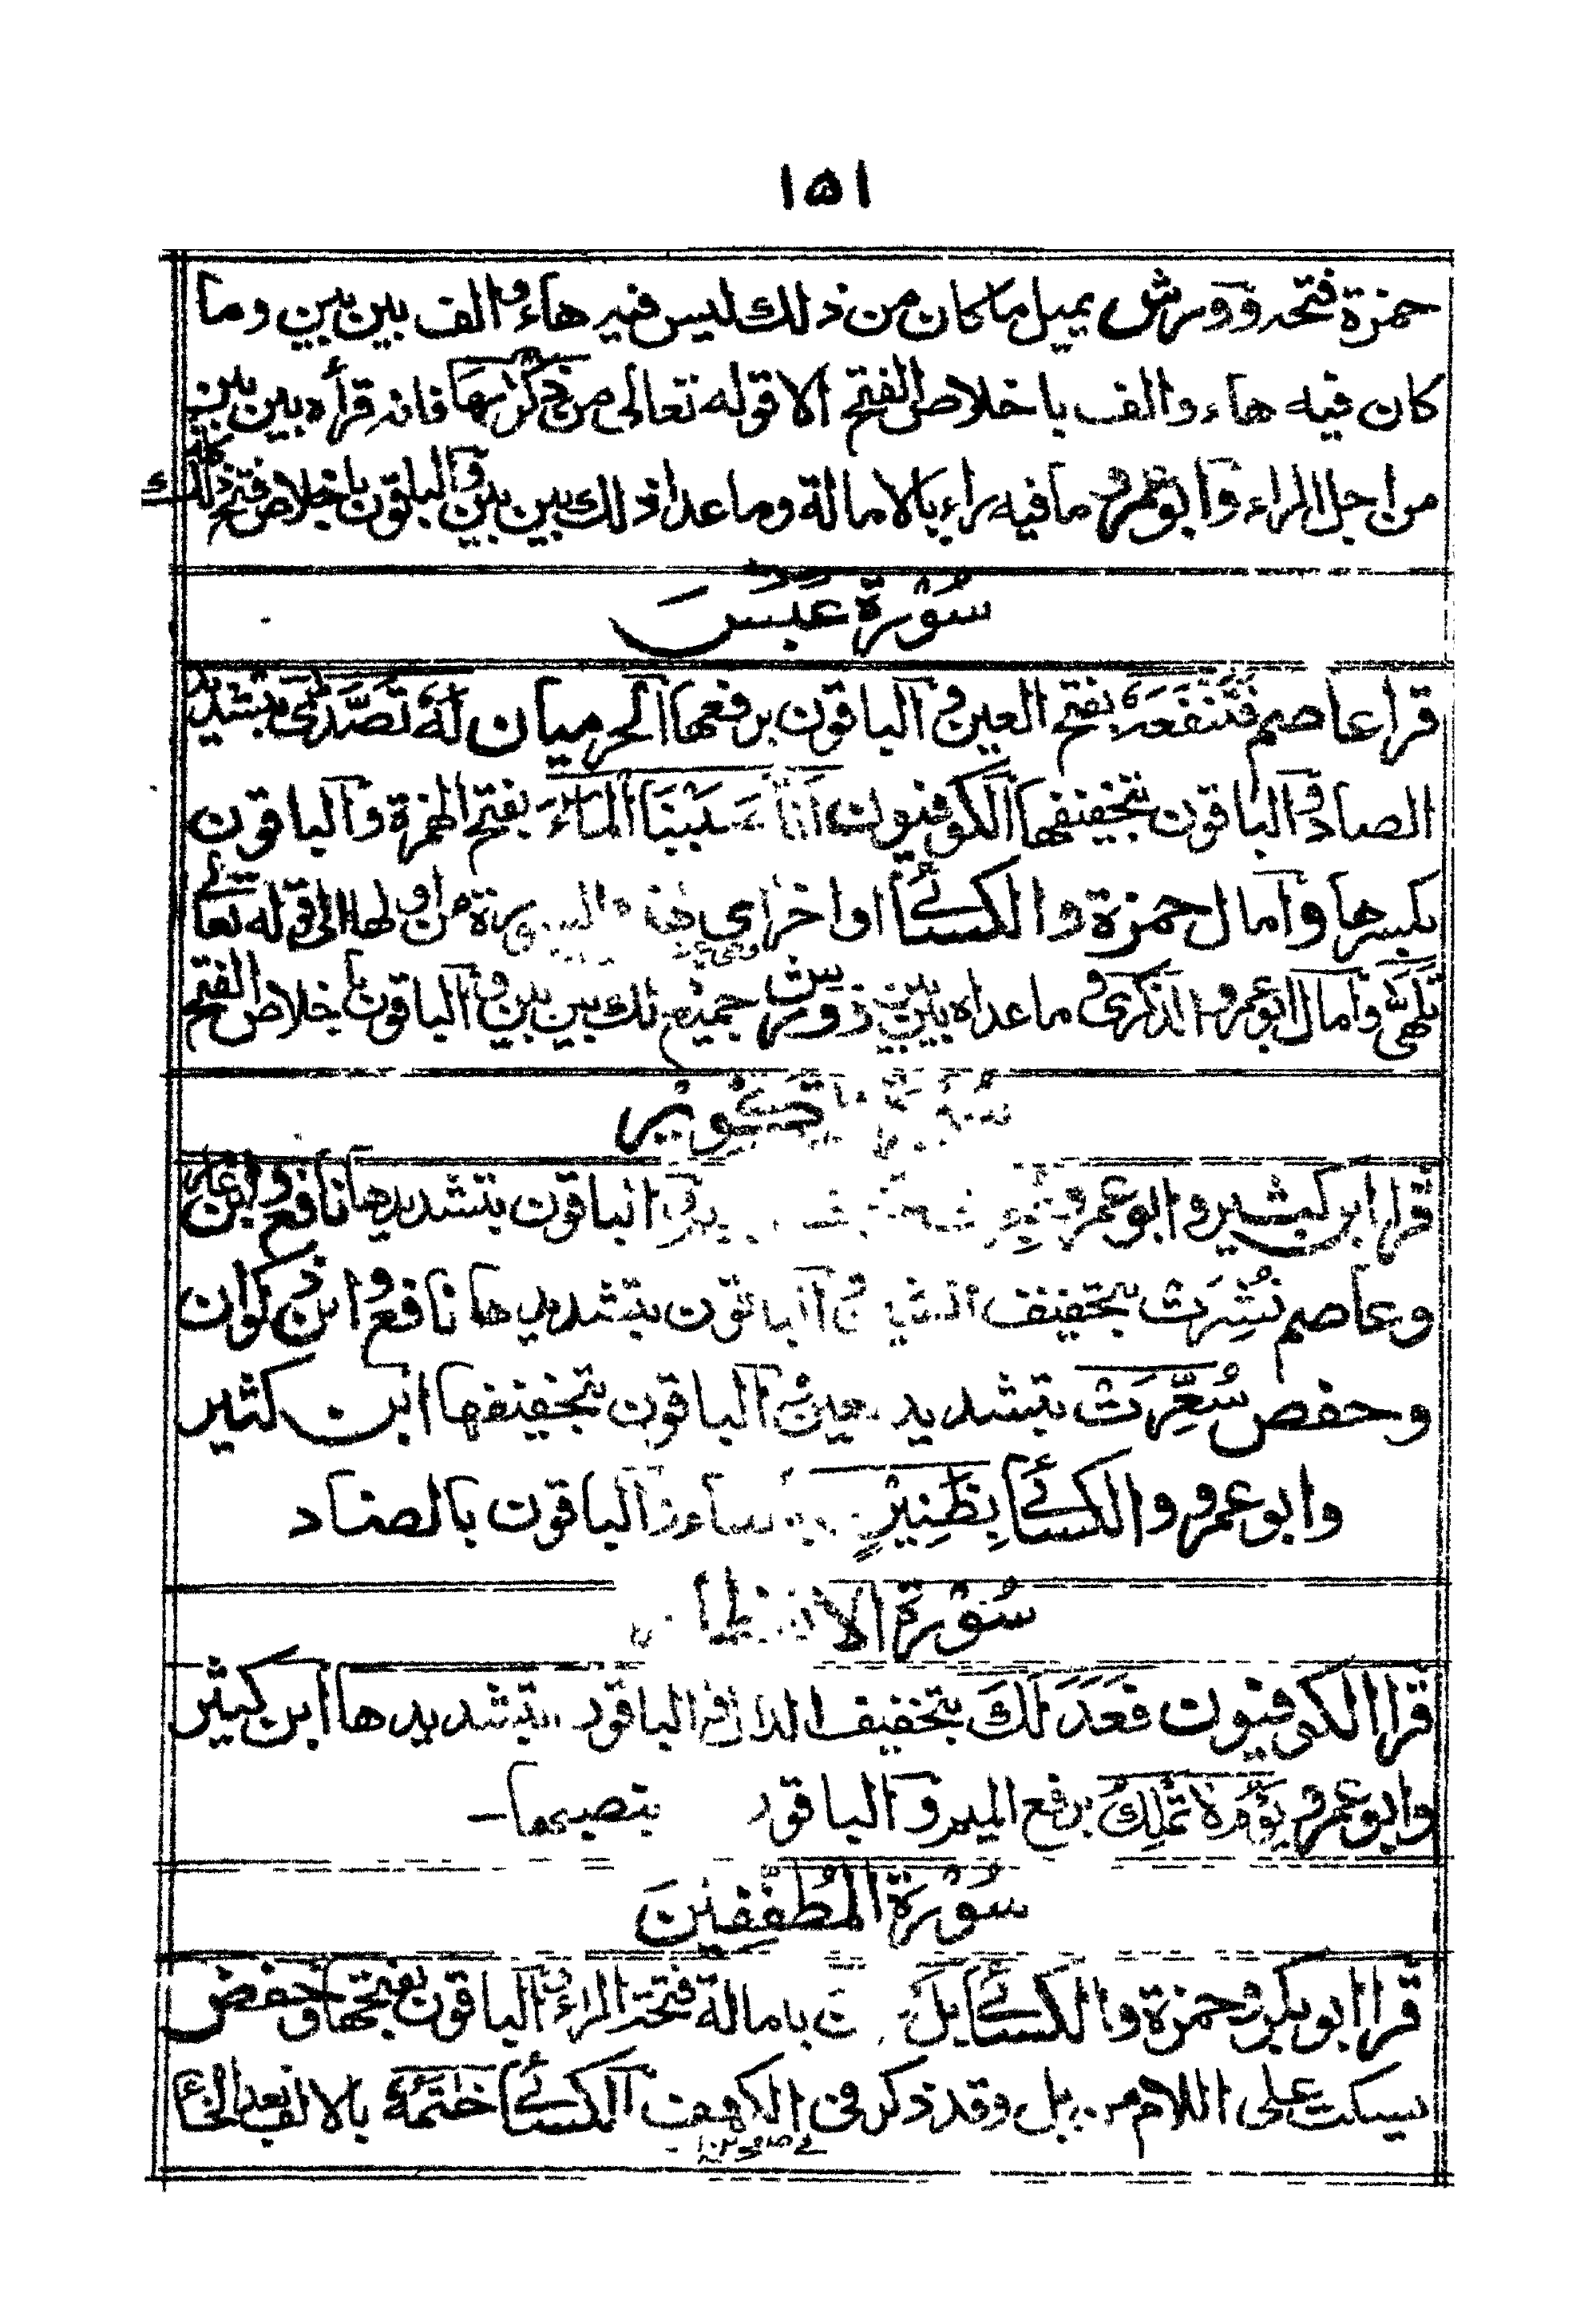 ١٥١
حمزة فتحه و ورش يميل ما كان من ذلك ليس فيه هاء والف بين بين وما
كان فيه هاء والف باخلاص الفتح الا قوله تعالى من ذكراها فانه قرأه بين بين
من اجل الراء وابو عمرو ما فيه راء بالامالة وما عدا ذلك بين بين والباقون باخلاص فتح ذلك كله
سُوْرَة عَبَسَ
قرا عاصم فَتَنْفَعَهُ بفتح العين والباقون برفعها الحرميان لَهُ تَصَّدّٰى بتشديد
الصاد والباقون بتخفيفها الكوفيون اَنَّا صَبَبْنَا الْمَآءَ بفتح الهمزة والباقون
بكسرها وامال حمزة والكسائى اواخر آى هذه السورة من اولها الى قوله تعالى
تَلَهّٰى وامال ابو عمرو الذكرى وما عداه بين بين و ورش جميع ذلك بين بين والباقون باخلاص الفتح
سُوْرَةُ التَّكْوِيْر
قرا ابن كثير وابو عمرو بتخفيف والباقون بتشديدها نافع وابن عامر
وعاصم نُشِرَتْ بتخفيف الشين والباقون بتشديدها نافع وابن ذكوان
وحفص سُعِّرَتْ بتشديد عين والباقون بتخفيفها ابن كثير
وابو عمرو والكسائى بِظَنِيْنٍ بالظاء والباقون بالضاد
سُوْرَةُ الانفطار
قرا الكوفيون فَعَدَلَكَ بتخفيف الدال والباقون بتشديدها ابن كثير
وابو عمرو يَوْمُ لَا تَمْلِكُ برفع الميم والباقون بنصبها
سُوْرَةُ الْمُطَفِّفِيْنَ
قرا ابو بكر وحمزة والكسائى بَلْ رَانَ بامالة فتحة الراء والباقون بفتحها وحفص
يسكت على اللام من بل وقد ذكر فى الكهف الكسائى خَاتَمُهُ بالالف بعد الخاء